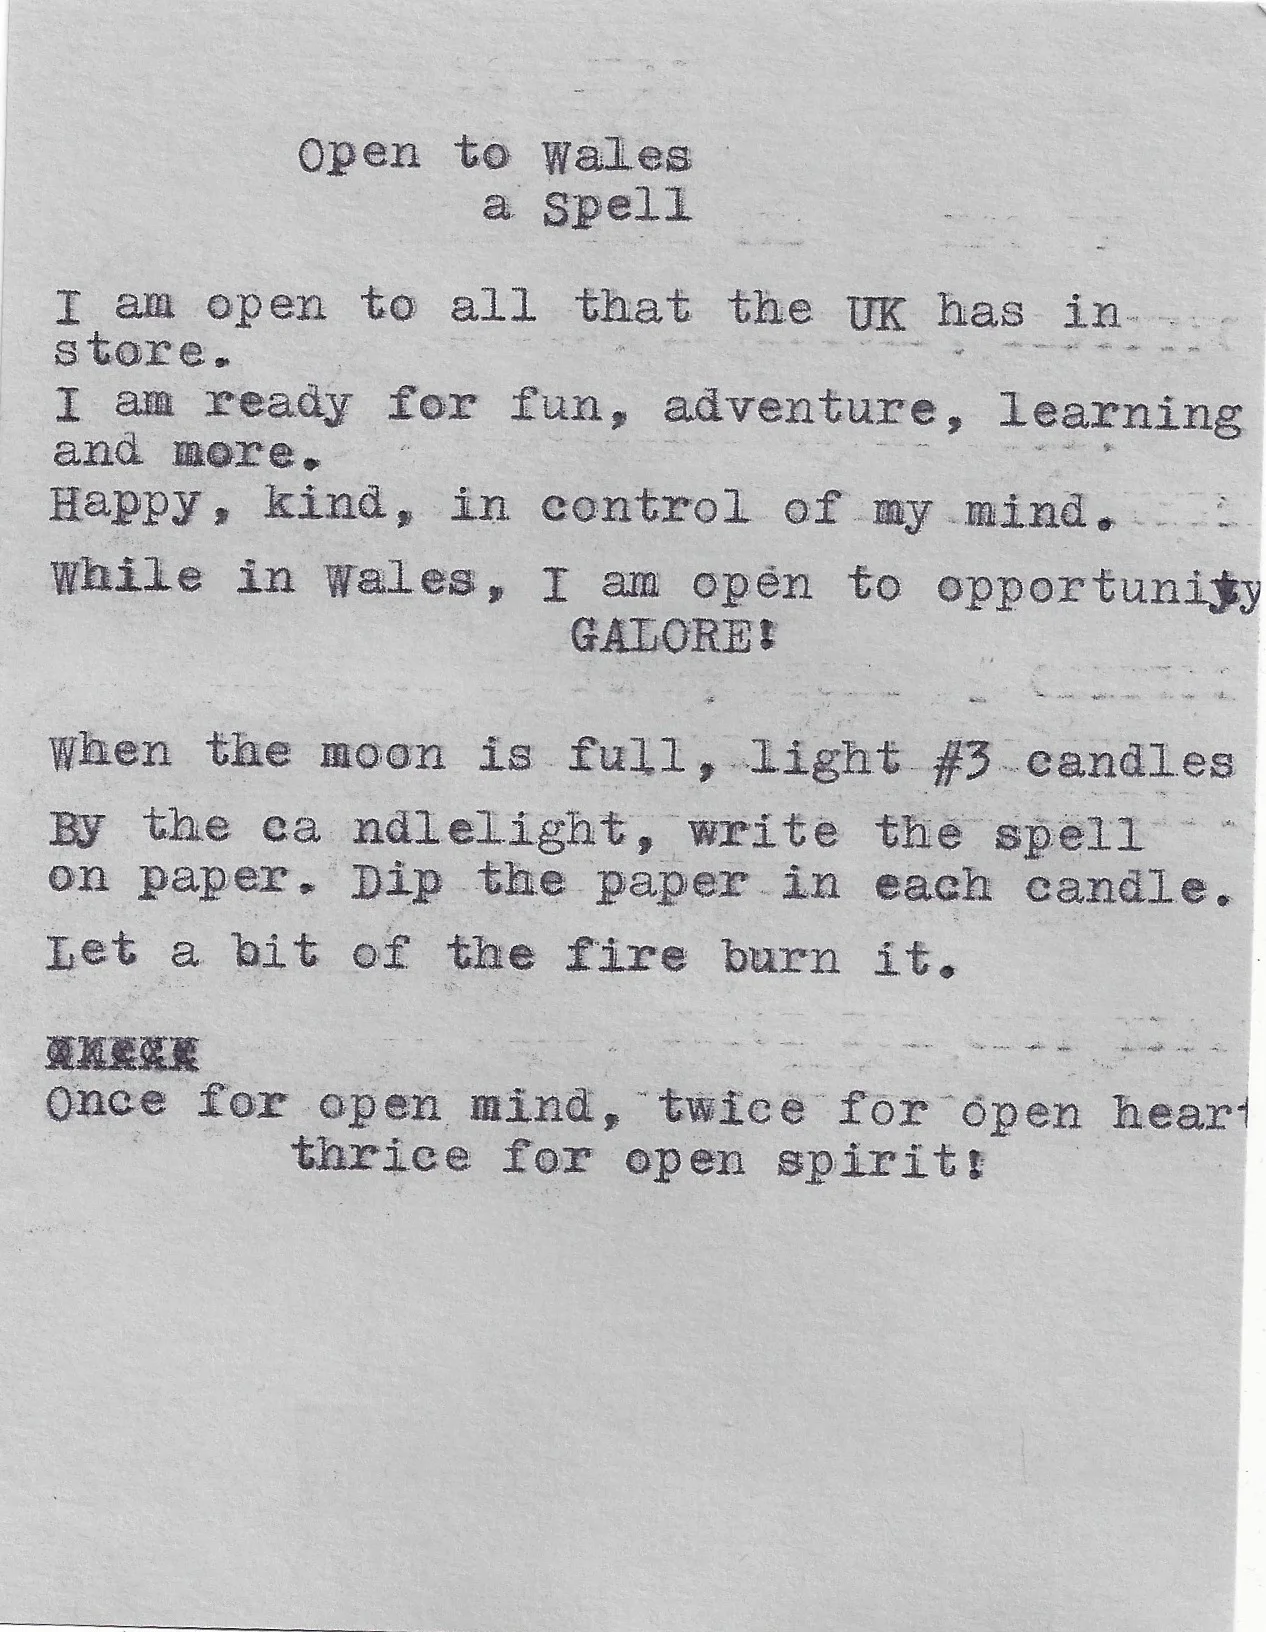 Open to Wales
a Spell
I am open to all that the UK has in
store.
I am ready for fun, adventure, learning
and more.
Happy, kind, in control of my mind.
While in Wales, I am open to opportunity
GALORE!
When the moon is full, light #3 candles
By the ca ndlelight, write the spell
on paper. Dip the paper in each candle.
Let a bit of the fire burn it.
Once for open mind, twice for open heart
thrice for open spirit!